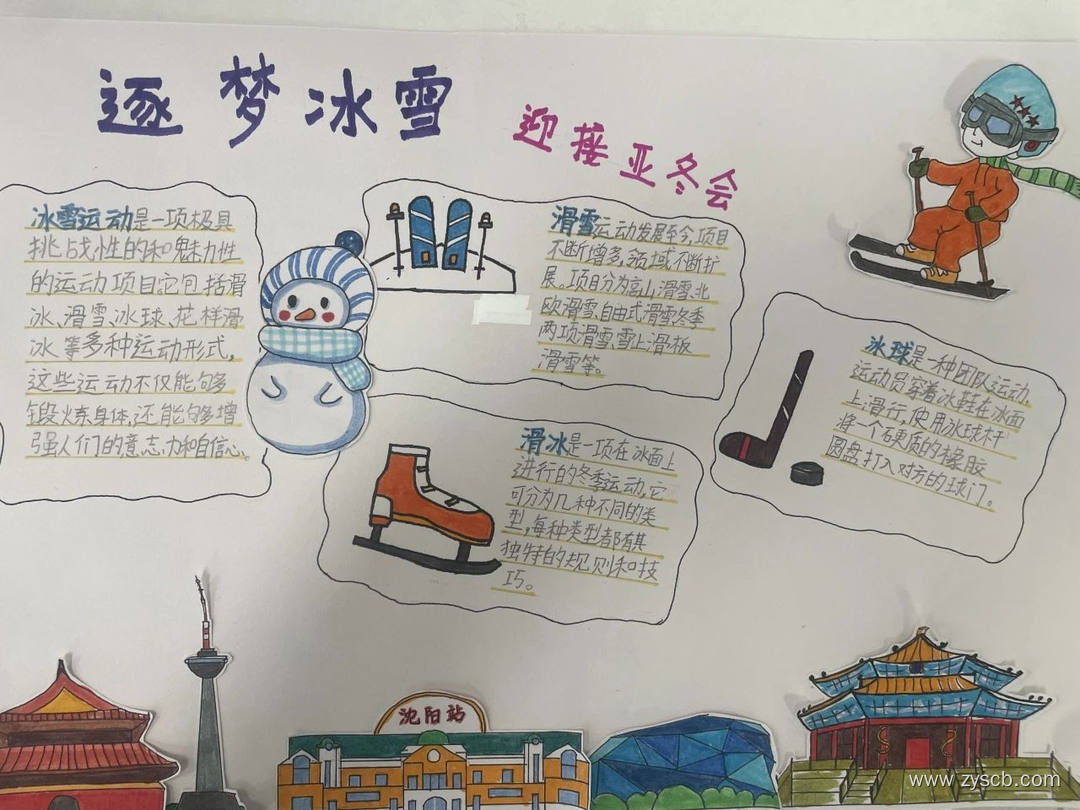 逐梦冰雪
迎接亚冬会
冰雪运动是一项极具
挑战性的和魅力性
的运动项目它包括滑
冰、滑雪、冰球、花样滑
冰等多种运动形式,
这些运动不仅能够
锻炼身体,还能够增
强人们的意志力和自信心。
滑雪运动发展至今,项目
不断增多,领域不断扩
展。项目分为高山滑雪、北
欧滑雪、自由式滑雪、冬季
两项滑雪,雪上滑板
滑雪等。
冰球是一种团队运动,
运动员穿着冰鞋在冰面
上滑行,使用冰球杆
将一个硬质的橡胶
圆盘打入对方的球门。
滑冰是一项在冰面上
进行的冬季运动,它
可分为几种不同的类
型,每种类型都有其
独特的规则和技
巧。
沈阳站
www.zyscb.com